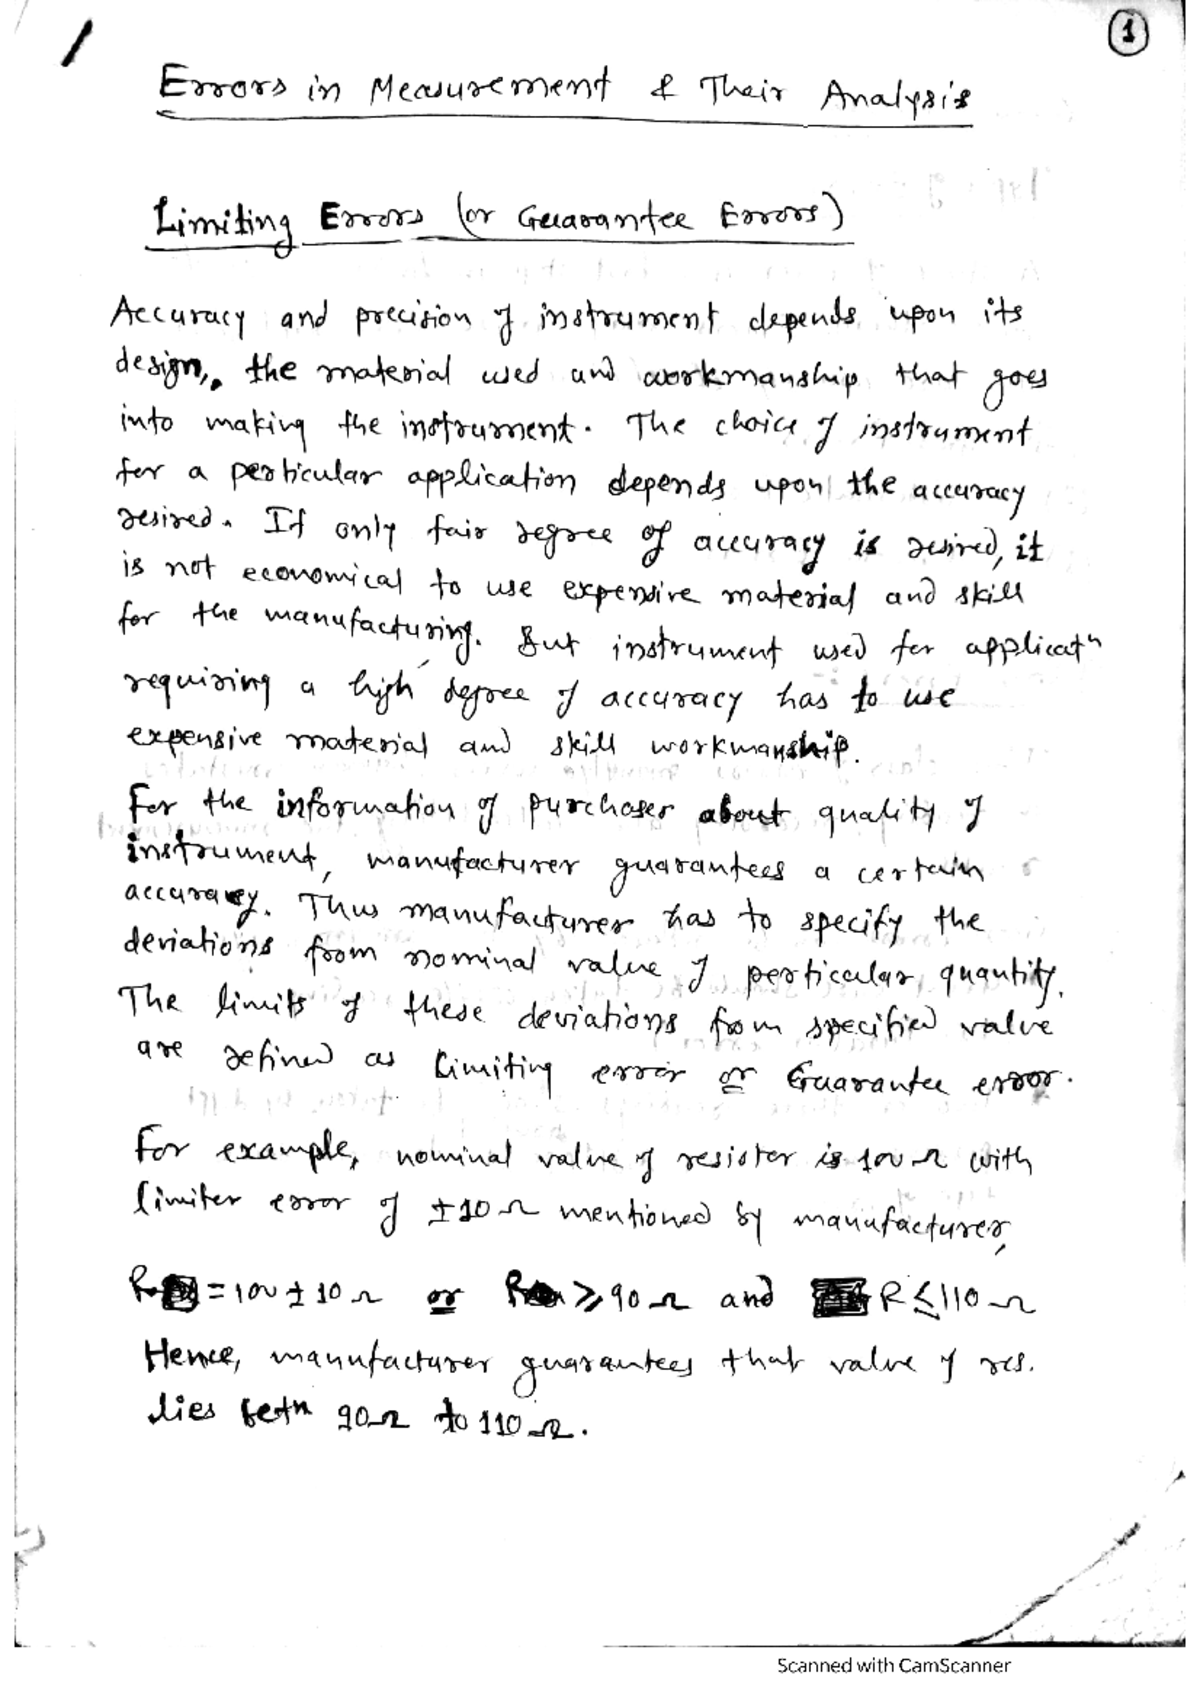 1
Errors in Measurement & Their Analysis
Limiting Errors (or Guarantee Errors)
Accuracy and precision of instrument depends upon its
design, the material used and workmanship that goes
into making the instrument. The choice of instrument
for a perticular application depends upon the accuracy
desired. If only fair degree of accuracy is desired, it
is not economical to use expensive material and skill
for the manufacturing. But instrument used for applicatn
requiring a high degree of accuracy has to use
expensive material and skill workmanship.
For the information of purchaser about quality of
instrument, manufacturer guarantees a certain
accuracy. Thus manufacturer has to specify the
deviations from nominal value of perticular quantity.
The limits of these deviations from specified value
are defined as Limiting error or Guarantee error.
For example, nominal value of resistor is 100 Ω with
limiter error of ±10 Ω mentioned by manufacturer,
R = 100 ± 10 Ω or R ≥ 90 Ω and R ≤ 110 Ω
Hence, manufacturer guarantees that value of res.
lies betn 90Ω to 110 Ω.
Scanned with CamScanner